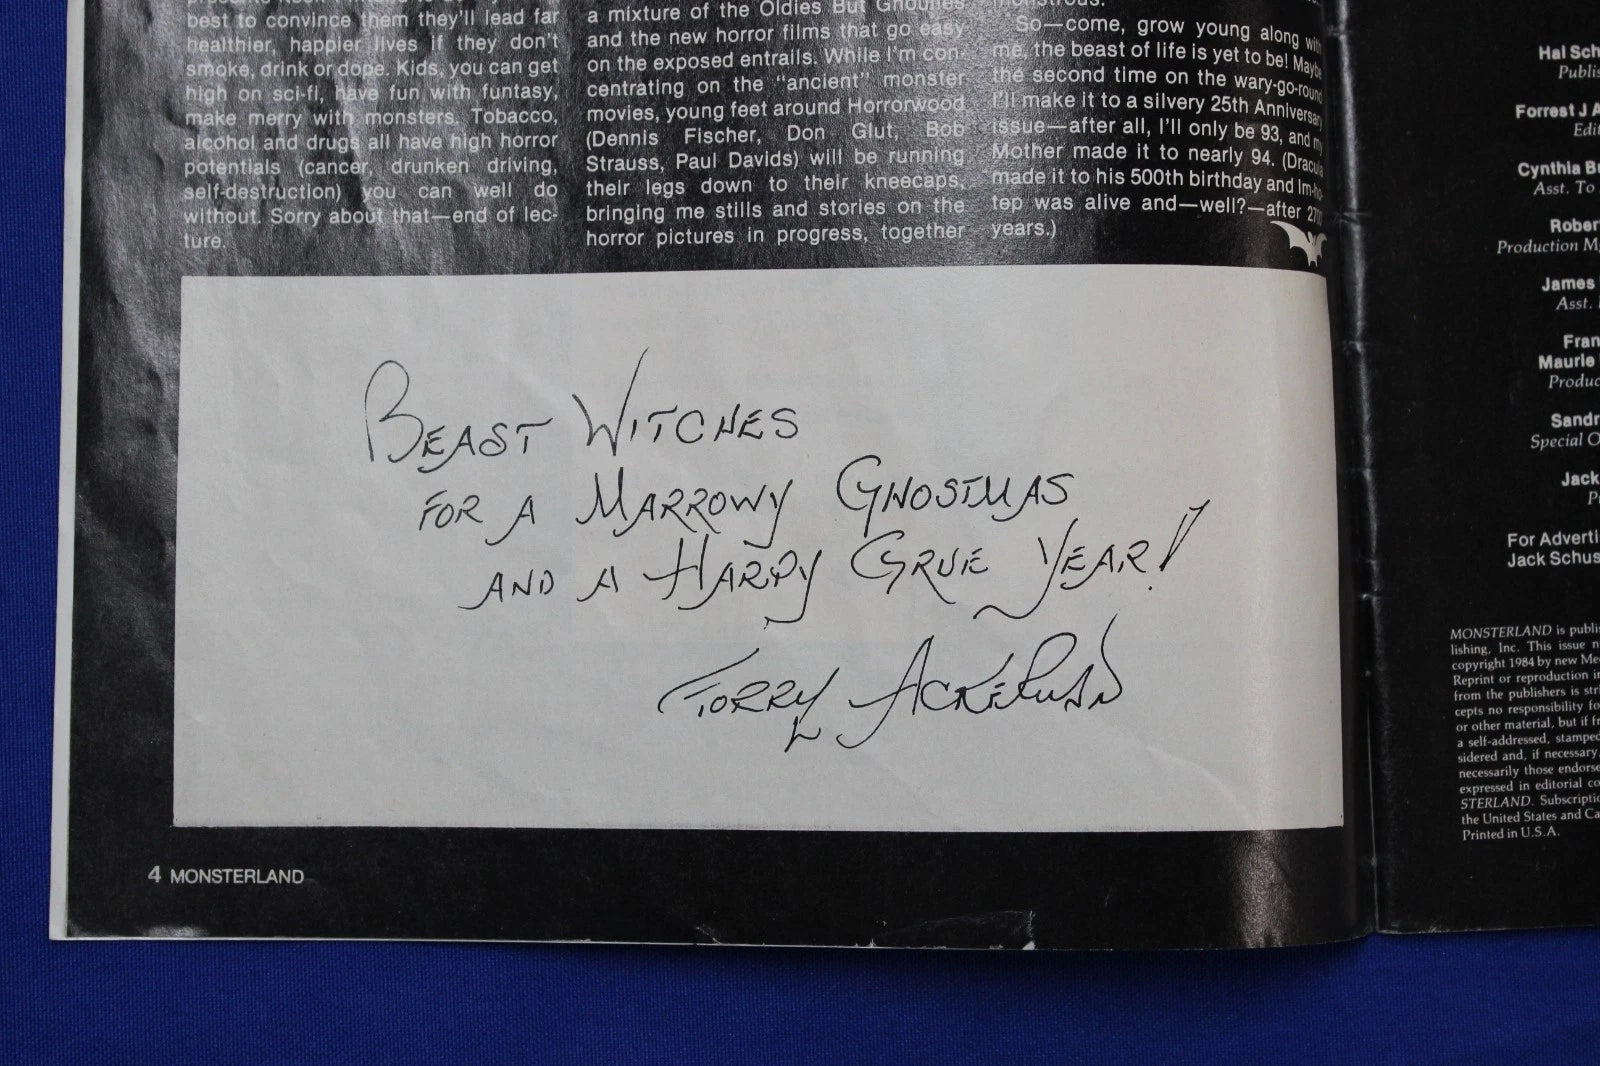 best to convince them they'll lead far
healthier, happier lives if they don't
smoke, drink or dope. Kids, you can get
high on sci-fi, have fun with funtasy,
make merry with monsters. Tobacco,
alcohol and drugs all have high horror
potentials (cancer, drunken driving,
self-destruction) you can well do
without. Sorry about that—end of lec-
ture.
a mixture of the Oldies But Ghoulies
and the new horror films that go easy
on the exposed entrails. While I'm con-
centrating on the "ancient" monster
movies, young feet around Horrorwood
(Dennis Fischer, Don Glut, Bob
Strauss, Paul Davids) will be running
their legs down to their kneecaps,
bringing me stills and stories on the
horror pictures in progress, together
monstrous.
So—come, grow young along with
me, the beast of life is yet to be! Maybe
the second time on the wary-go-round
I'll make it to a silvery 25th Anniversary
issue—after all, I'll only be 93, and my
Mother made it to nearly 94. (Dracula
made it to his 500th birthday and Im-ho-
tep was alive and—well?—after
years.)
BEAST WITCHES
FOR A MARROWY GHOSTMAS
AND A HARPY GRUE YEAR!
FORRY ACKERMAN
4 MONSTERLAND
Hal Sch
Publis
Forrest J A
Edit
Cynthia B
Asst. To
Rober
Production M
James
Asst.
Fran
Maurie
Produc
Sandr
Special O
Jack
P
For Adverti
Jack Schus
MONSTERLAND is publi
lishing, Inc. This issue n
copyright 1984 by new Me
Reprint or reproduction i
from the publishers is stri
cepts no responsibility fo
or other material, but if fr
a self-addressed, stamped
sidered and, if necessary,
necessarily those endorse
expressed in editorial co
STERLAND. Subscriptio
the United States and Ca
Printed in U.S.A.